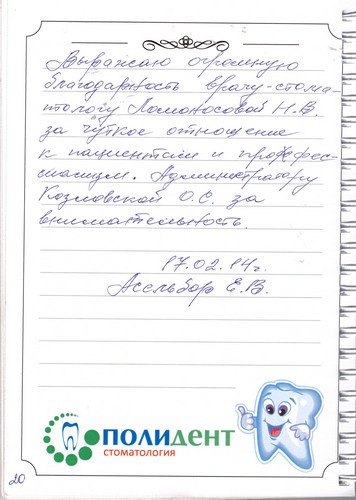 Выражаю огромную
благодарность врачу-стома-
тологу Ломоносовой Н.В.
за чуткое отношение
к пациентам и професс-
сионализм. Администратору
Козловской О.С. за
внимательность.
17.02.14г.
Е.В.
ПОЛИДЕНТ
СТОМАТОЛОГИЯ
20